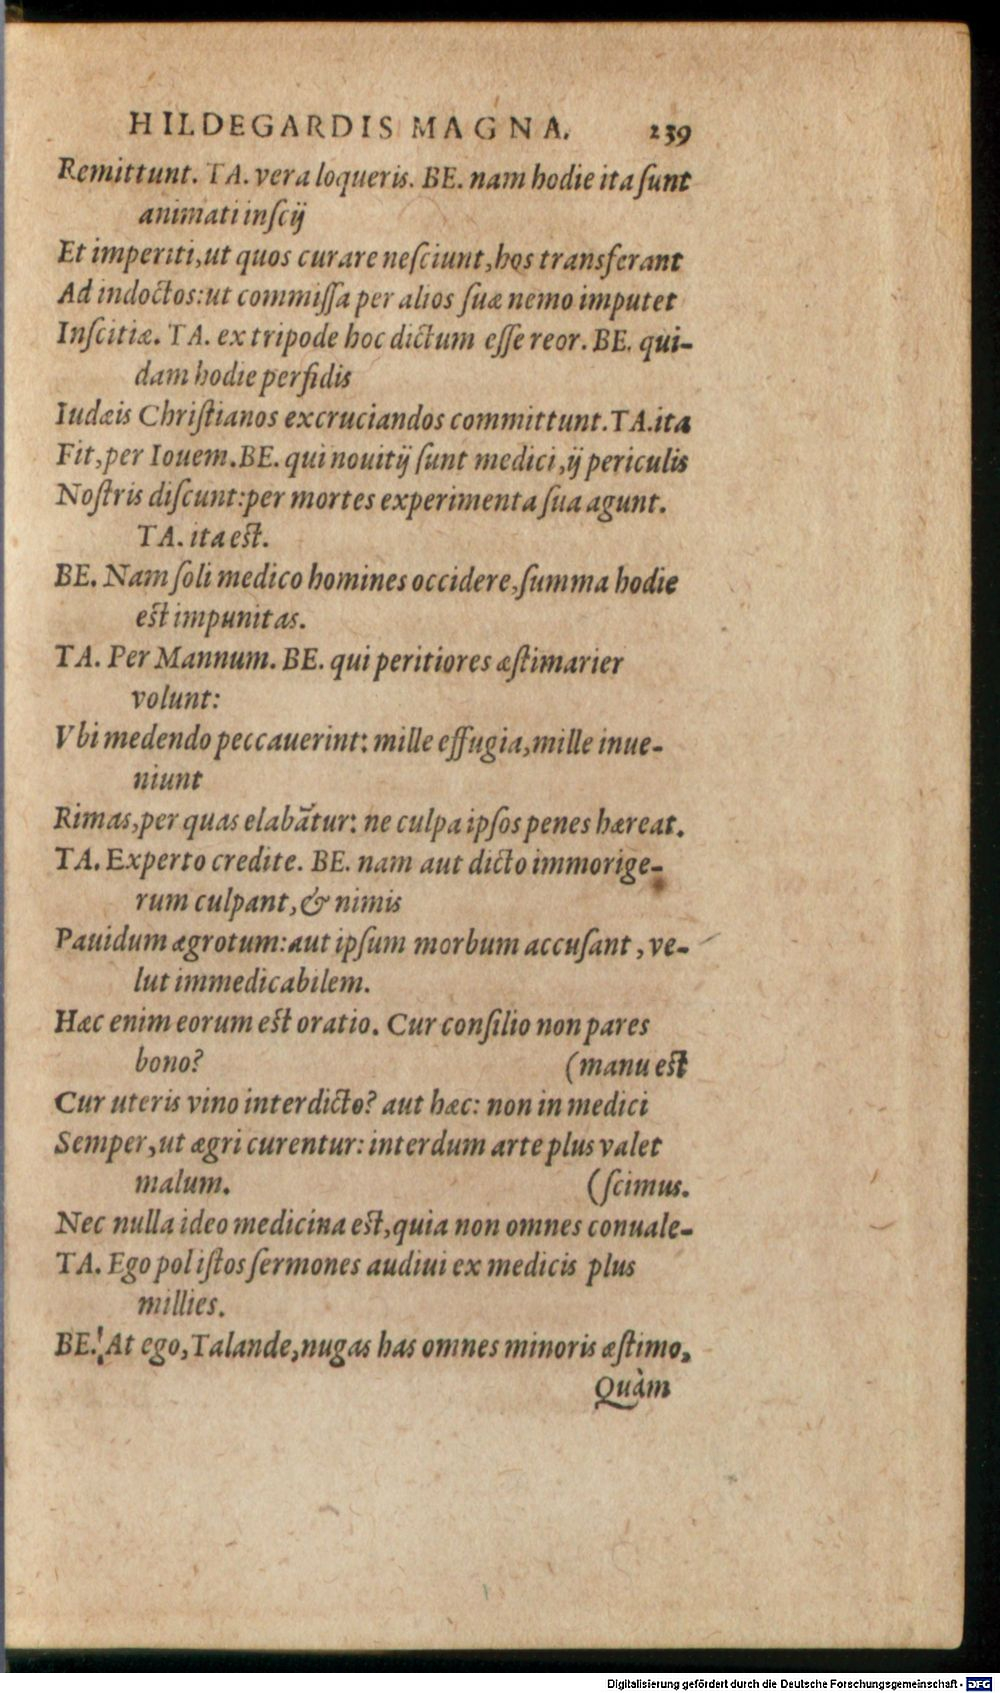 HILDEGARDIS MAGNA. 239
Remittunt. TA. vera loqueris. BE. nam hodie ita ſunt
animati inſcij
Et imperiti, ut quos curare neſciunt, hos transferant
Ad indoctos: ut commiſſa per alios ſuæ nemo imputet
Inſcitiæ. TA. ex tripode hoc dictum eſſe reor. BE. qui-
dam hodie perfidis
Iudæis Chriſtianos excruciandos committunt. TA. ita
Fit, per Iouem. BE. qui nouitij ſunt medici, ij periculis
Noſtris diſcunt: per mortes experimenta ſua agunt.
TA. ita eſt.
BE. Nam ſoli medico homines occidere, ſumma hodie
eſt impunitas.
TA. Per Mannum. BE. qui peritiores æſtimarier
volunt:
Vbi medendo peccauerint: mille effugia, mille inue-
niunt
Rimas, per quas elabãtur: ne culpa ipſos penes hæreat.
TA. Experto credite. BE. nam aut dicto immorige-
rum culpant, & nimis
Pauidum ægrotum: aut ipſum morbum accuſant, ve-
lut immedicabilem.
Hæc enim eorum eſt oratio. Cur conſilio non pares
bono? (manu eſt
Cur uteris vino interdicto? aut hæc: non in medici
Semper, ut ægri curentur: interdum arte plus valet
malum. (ſcimus.
Nec nulla ideo medicina eſt, quia non omnes conuale-
TA. Ego pol iſtos ſermones audiui ex medicis plus
millies.
BE. At ego, Talande, nugas has omnes minoris æſtimo,
Quàm
Digitalisierung gefördert durch die Deutsche Forschungsgemeinschaft - DFG